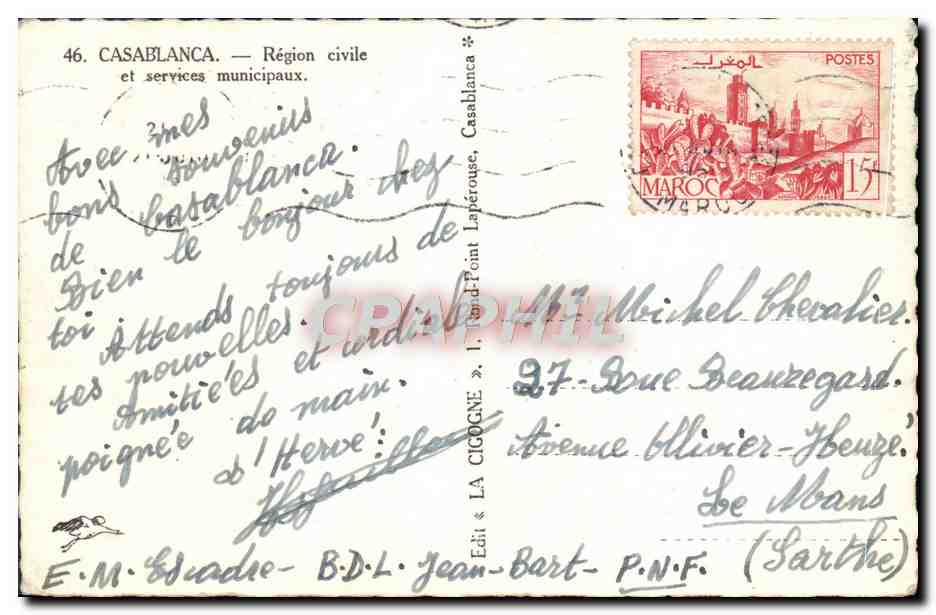 46. CASABLANCA. — Région civile
et services municipaux.
Avec mes
bons souvenirs
de Casablanca.
Bien le bonjour chez
toi
Attends toujours de
tes nouvelles.
Amitiées et cordiale
poignée de main.
d'Hervé:
E.M. Escadre - B.D.L. Jean-Bart - P.N.F.
Edit « LA CIGOGNE ». 1, Rond-Point Lapérouse, Casablanca *
المغرب
POSTES
MAROC
15f
MAROC
Mr Michel Chevalier.
27 - Rue Beauregard.
Avenue Ollivier-Heuzé.
Le Mans
(Sarthe)
CPAPHIL